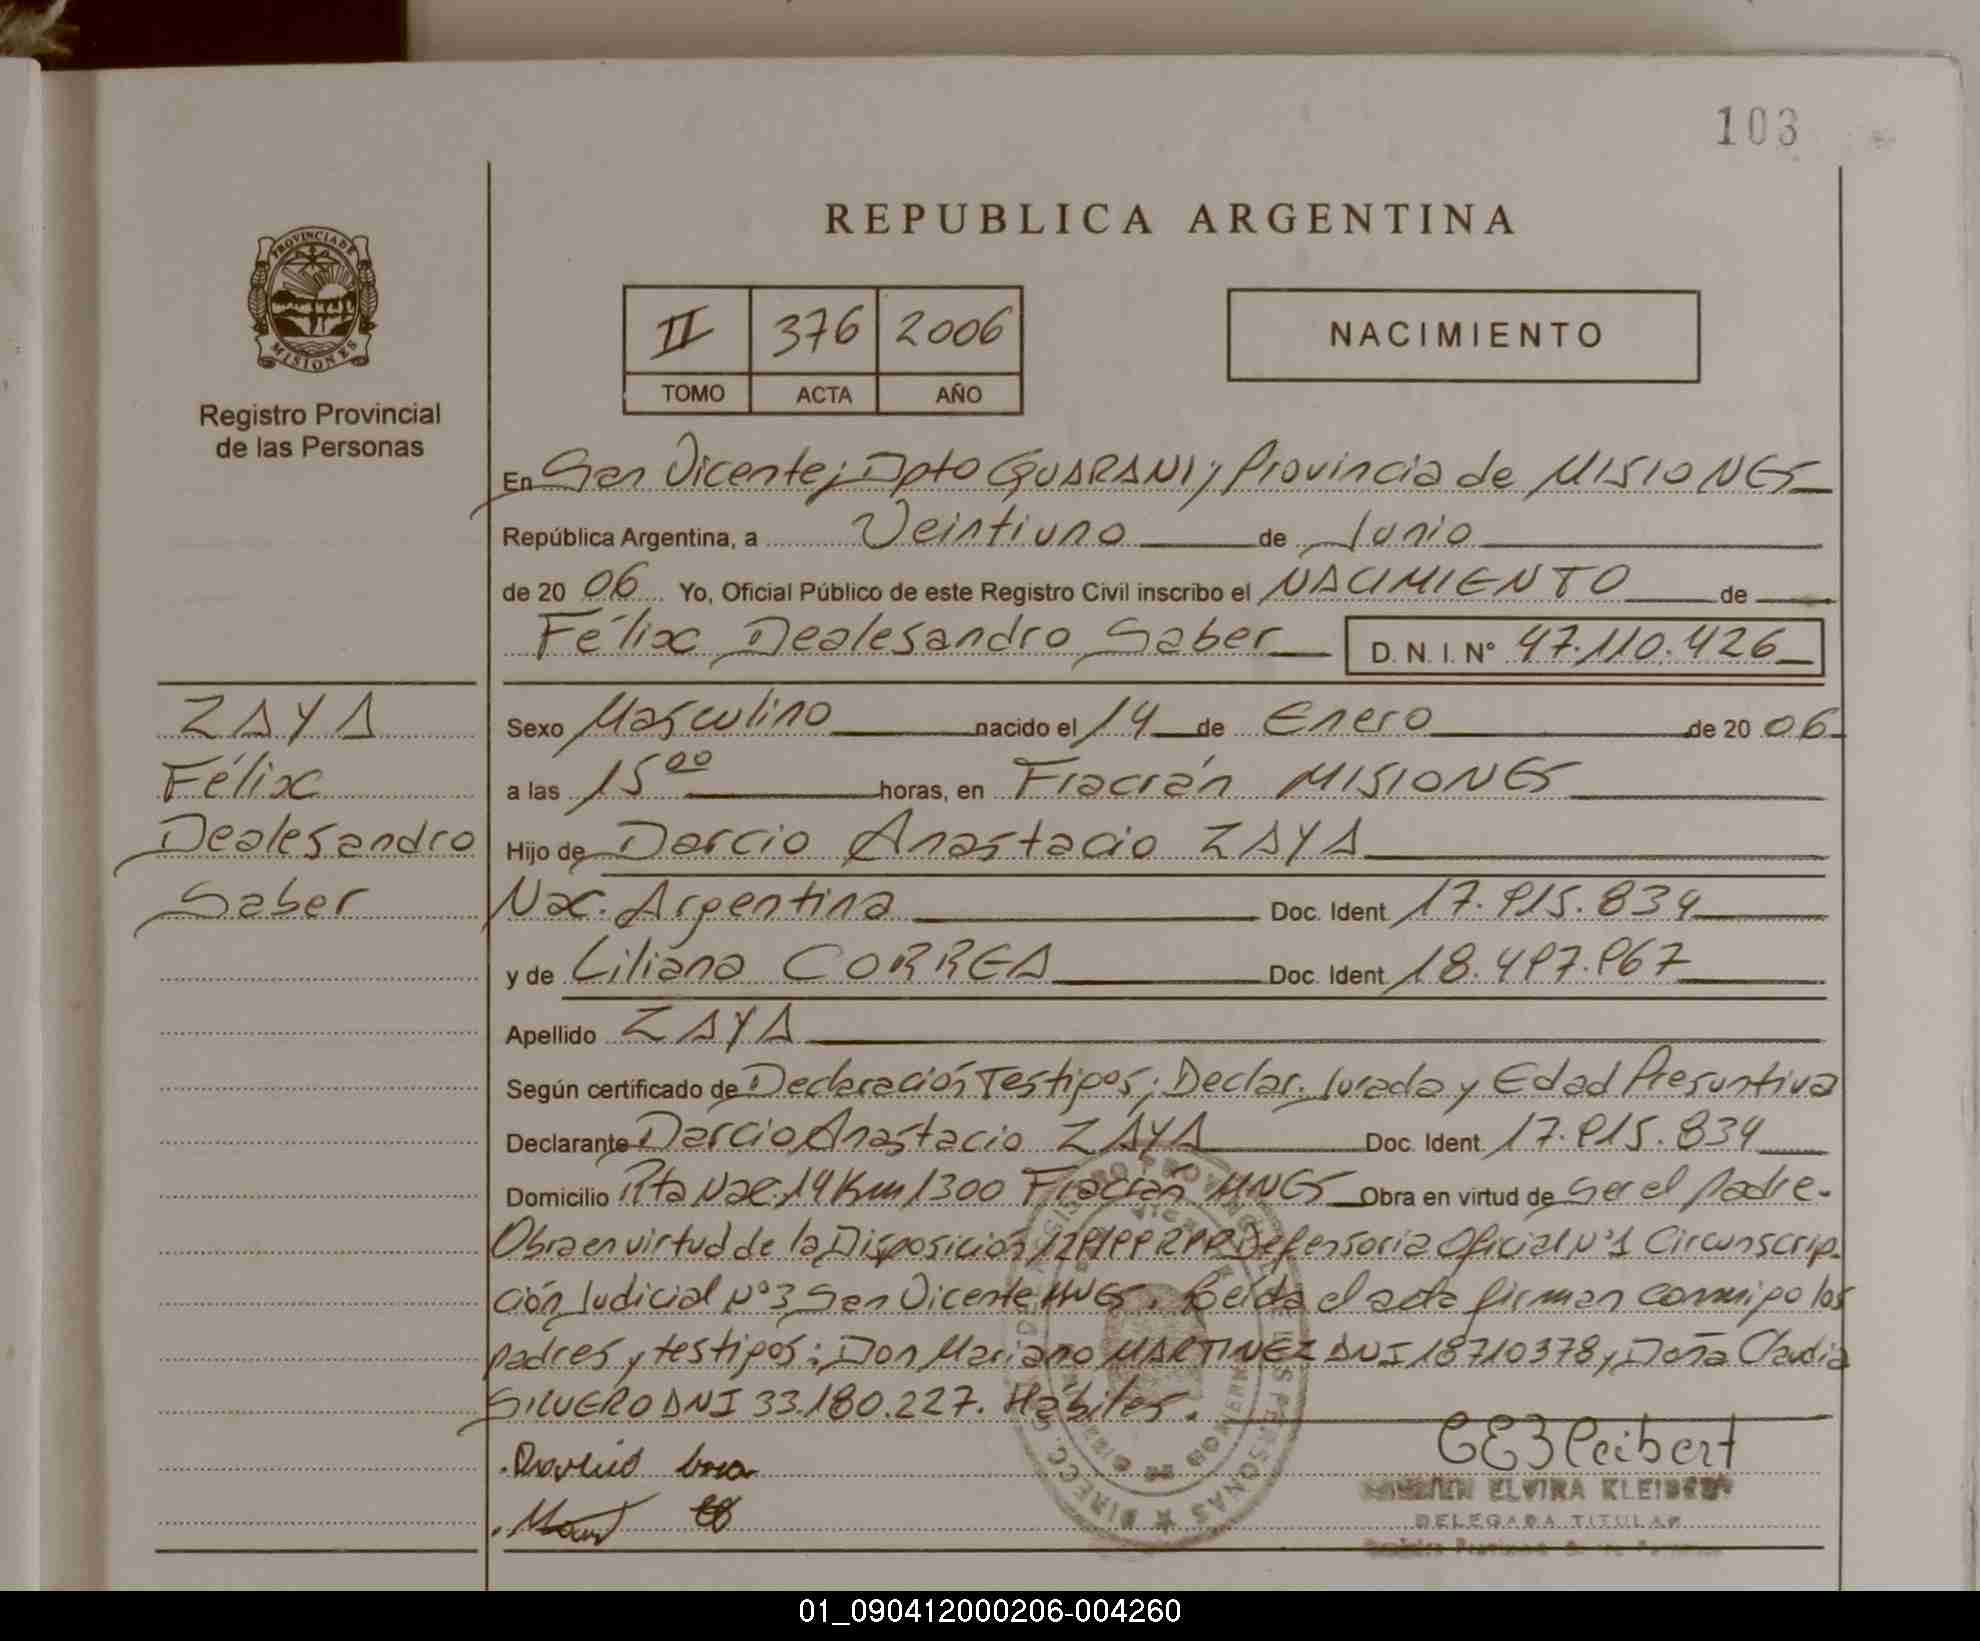 103
REPUBLICA ARGENTINA
PROVINCIA DE MISIONES
Registro Provincial
de las Personas
II 376 2006
TOMO ACTA AÑO
NACIMIENTO
En San Vicente; Dpto GUARANI; Provincia de MISIONES
República Argentina, a Veintiuno de Junio
de 20 06 Yo, Oficial Público de este Registro Civil inscribo el NACIMIENTO de
Félix Dealesandro Saber D. N. I. N° 47.110.426
ZAYA
Félix
Dealesandro
Saber
Sexo Masculino nacido el 14 de Enero de 20 06
a las 15 00 horas, en Fracrán MISIONES
Hijo de Darcio Anastacio ZAYA
Nac. Argentina Doc. Ident 17.915.834
y de Liliana CORREA Doc. Ident 18.497.967
Apellido ZAYA
Según certificado de Declaración Testigos; Declar. Jurada y Edad Presuntiva
Declarante Darcio Anastacio ZAYA Doc. Ident 17.915.834
Domicilio Rta Nac. 14 Km 1300 Fracrán MNES Obra en virtud de Ser el Padre.
Obra en virtud de la Disposición Defensoria Oficial N°1 Circunscrip-
ción Judicial N°3 San Vicente MNES. Leída el acta firman conmigo los
padres y testigos: Don Mariano MARTINEZ DNI 18710378 y Doña Claudia
SILVERO DNI 33.180.227. Hábiles.
ELVIRA KLEIBERT
DELEGADA TITULAR
01_090412000206-004260